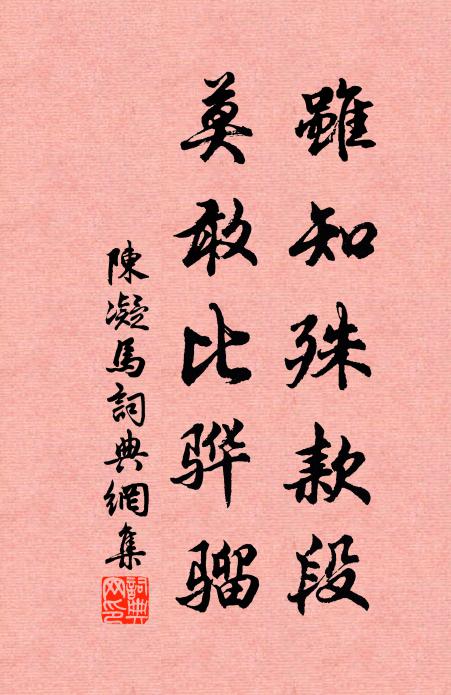 雖知殊款段
莫敢比骅骝
陳凝馬詞典網集
詞典網印